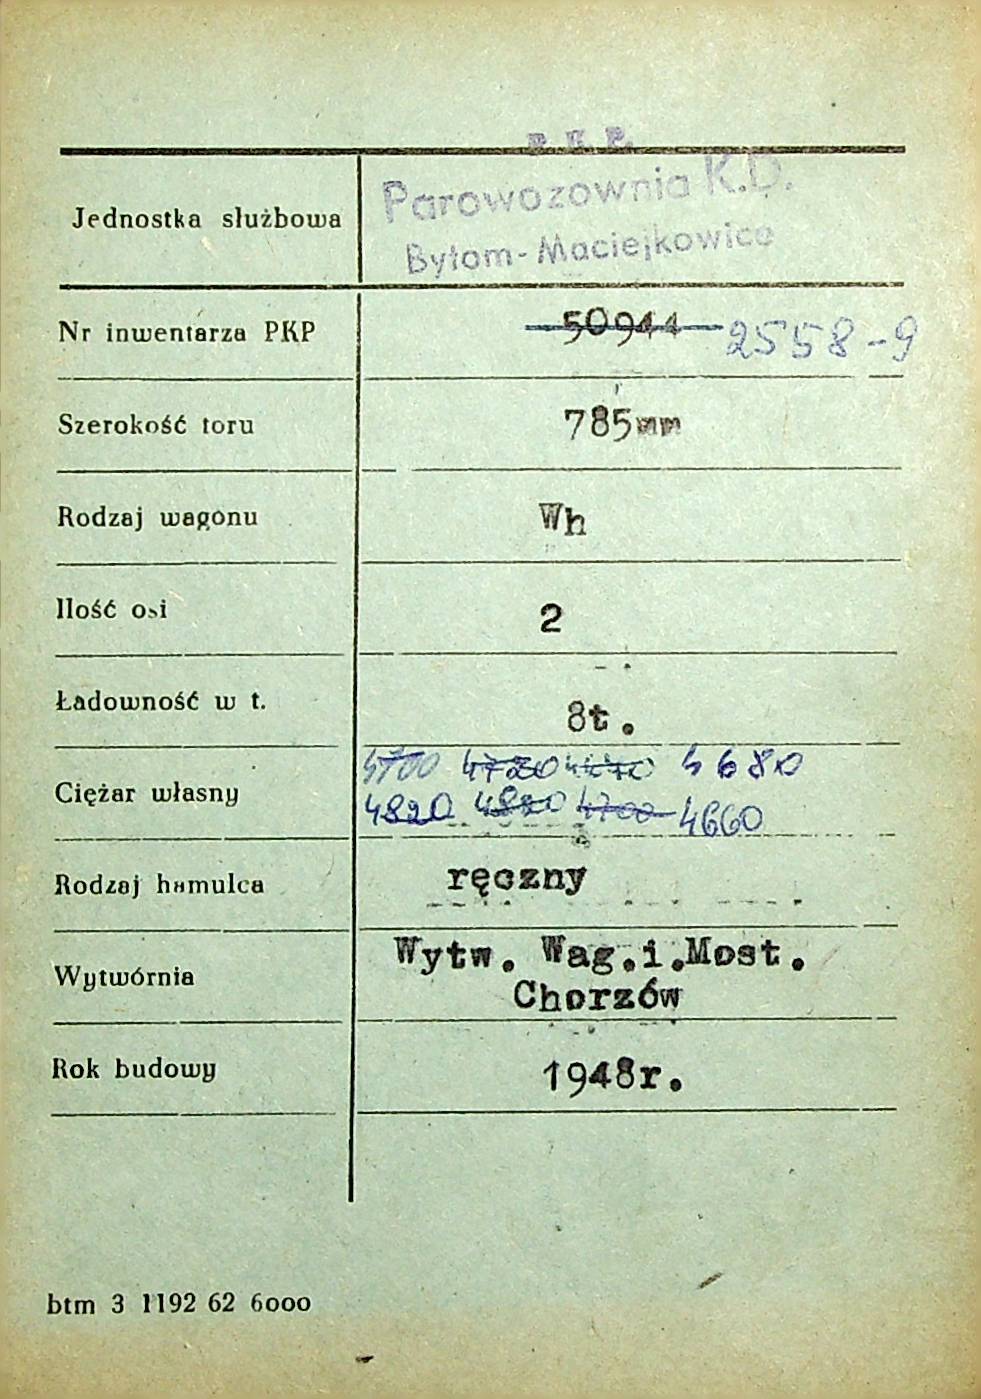 P. K. P.
Jednostka służbowa Parowozownia K.D.
Bytom-Maciejkowice
Nr inwentarza PKP 50944 2558-9
Szerokość toru 785mm
Rodzaj wagonu Wh
Ilość osi 2
Ładowność w t. 8t.
4700 4680
Ciężar własny 4820 4820 4700 4660
Rodzaj hamulca ręczny
Wytwórnia Wytw. Wag.i.Most.
Chorzów
Rok budowy 1948r.
btm 3 1192 62 6000